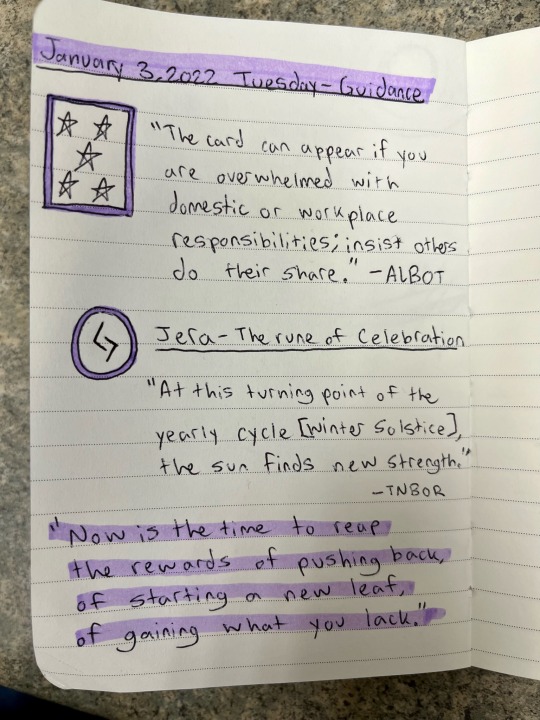 January 3, 2022 Tuesday - Guidance
"The card can appear if you
are overwhelmed with
domestic or workplace
responsibilities; insist others
do their share." -ALBOT
Jera - The rune of Celebration
"At this turning point of the
yearly cycle [Winter Solstice],
the sun finds new strength."
-TNBOR
"Now is the time to reap
the rewards of pushing back,
of starting a new leaf,
of gaining what you lack."